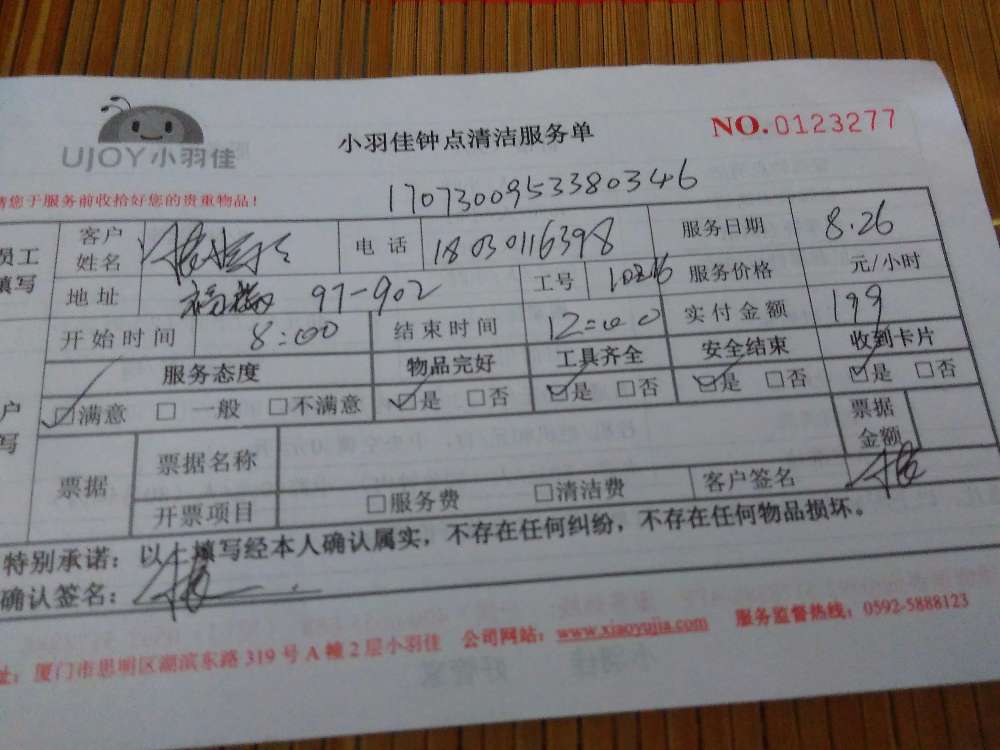 UJOY小羽佳
小羽佳钟点清洁服务单
NO.0123277
请您于服务前收拾好您的贵重物品!
1707300953380346
员工
填写
客户
姓名
电话
18030116398
服务日期
8.26
地址
97-902
工号
服务价格
元/小时
开始时间
8:00
结束时间
12:00
实付金额
199
服务态度
物品完好
工具齐全
安全结束
收到卡片
户
写
☑满意 □ 一般 □不满意
☑是 □否
☑是 □否
☑是 □否
☑是 □否
票据
票据名称
票据
金额
开票项目
□服务费 □清洁费
客户签名
特别承诺：以上填写经本人确认属实，不存在任何纠纷，不存在任何物品损坏。
确认签名：
址：厦门市思明区湖滨东路 319 号 A 幢 2 层小羽佳 公司网站：www.xiaoyujia.com 服务监督热线：0592-5888123